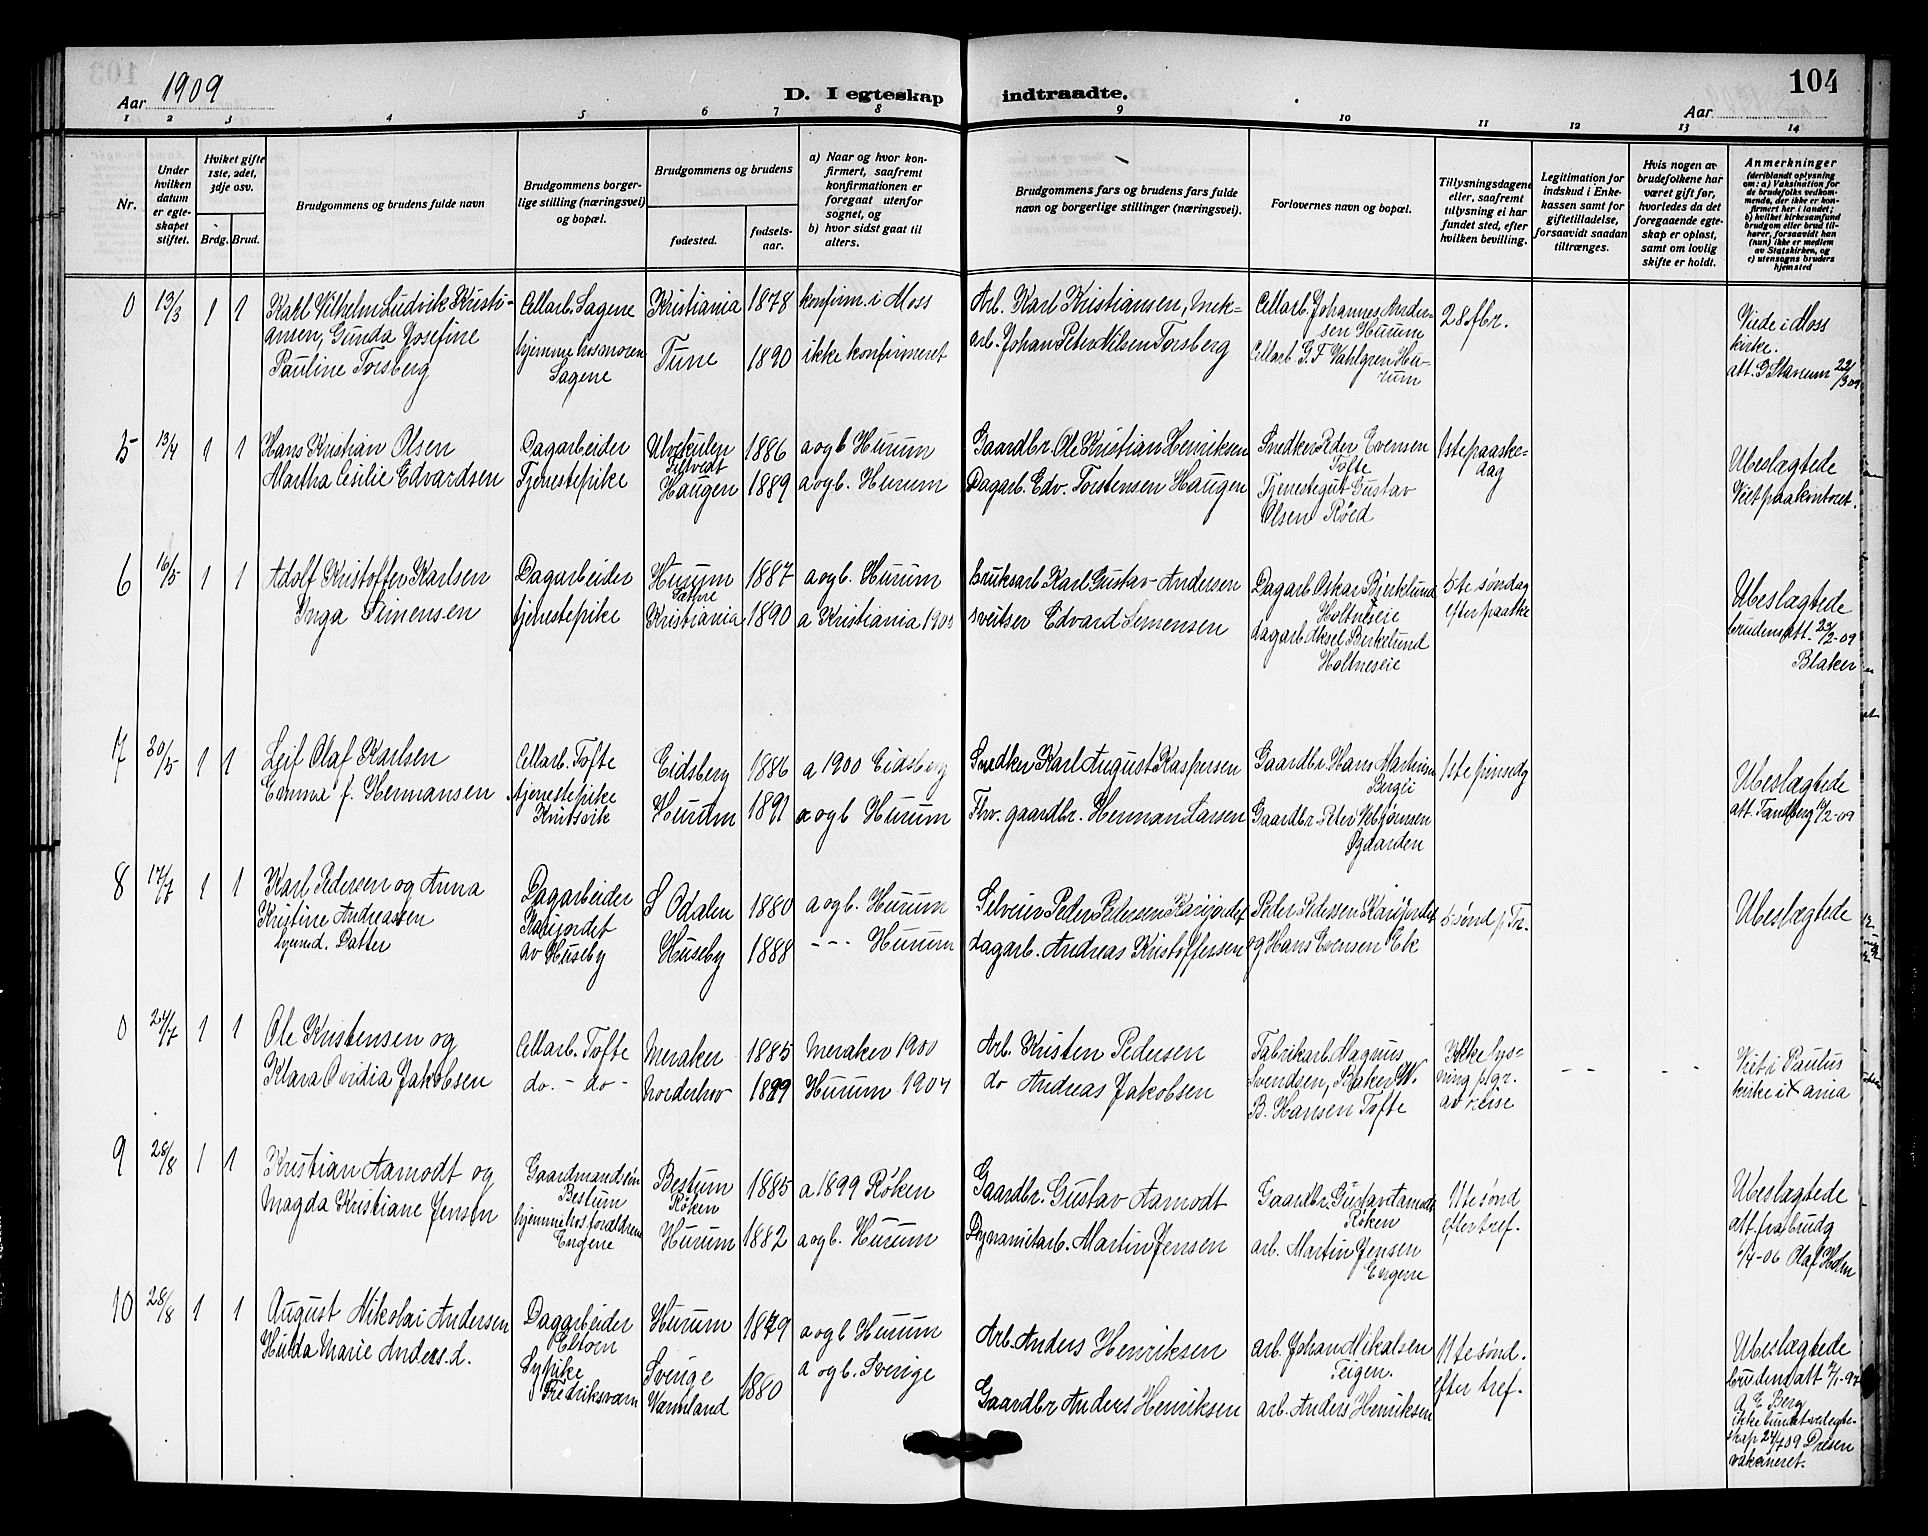 Aar 1909
D. I egteskap indtraadte.
Aar
104
1 2 3 4 5 6 7 8 9 10 11 12 13 14
Nr.
Under hvilken datum er egteskapet stiftet.
Hvilket gifte 1ste, 2det, 3dje osv.
Brdg. Brud.
Brudgommens og brudens fulde navn
Brudgommens borgerlige stilling (næringsvei) og bopæl.
Brudgommens og brudens
fødested. fødselsaar.
a) Naar og hvor konfirmert, saafremt konfirmationen er foregaat utenfor sognet, og
b) hvor sidst gaat til alters.
Brudgommens fars og brudens fars fulde navn og borgerlige stillinger (næringsvei).
Forlovernes navn og bopæl.
Tillysningsdagene eller, saafremt tillysning ei har fundet sted, efter hvilken bevilling.
Legitimation for indskud i Enkekassen samt for giftetilladelse, forsaavidt saadan tiltrænges.
Hvis nogen av brudefolkene har været gift før, hvorledes da det foregaaende egteskap er opløst, samt om lovlig skifte er holdt.
Anmerkninger (deriblandt oplysning om: a) Vaksination for de brudefolks vedkommende, der ikke er konfirmert her i landet; b) hvilket kirkesamfund brudgom eller brud tilhører, forsaavidt han (hun) ikke er medlem av Statskirken, og c) utensogns bruders hjemsted
0 13/3 1 1 Karl Vilhelm Ludvik Kristiansen, Gunda Josefine Pauline Torsberg
Cellarb. Sagene
hjemme hos moren Sagene
Kristiania 1878 konfirm. i Moss
Tune 1890 ikke konfirmeret
Arb. Karl Kristiansen,
arb. Johan Peter Nilsen Torsberg
Cellarb. Johannes Andersen Hurum
Cellarb. G. F. Vahlgren Hurum
28 Fbr.
Viede i Moss kirke.
att. G Stanum 22/3 09
5 13/4 1 1 Hans Kristian Olsen
Martha Cesilie Edvardsen
Dagarbeider
Tjenestepike
Ulvekulen Filtvedt 1886 a og b Hurum
Haugen 1889 a og b. Hurum
Gaardbr. Ole Kristian Henriksen
Dagarb. Edv. Torstensen Haugen
Snedker Peder Evensen Tofte
Tjenestegut Gustav Olsen Røed
1ste paaskedag
Ubeslægtede
Viet paa kontoret.
6 16/5 1 1 Adolf Kristoffer Karlsen
Inga Simensen
Dagarbeider
tjenestepike
Hurum Sætre 1887 a og b. Hurum
Kristiania 1890 a Kristiania 1905
bruksarb. Karl Gustav Andersen
sveitser Edvard Simensen
Dagarb. Oskar Bjerklund Holtneseie
dagarb. Aksel Birkelund Holtneseie
5te søndag efter paaske
Ubeslægtede
brudens att. 22/2-09 Blaker
7 30/5 1 1 Leif Olaf Karlsen
Emma f. Hermansen
Cellarb. Tofte
tjenestepike Knivsvik
Eidsberg 1886 a 1900 Eidsberg
Hurum 1891 a og b Hurum
Snedker Karl August Kaspersen
Fhv. gaardbr. Herman Larsen
Gaardbr. Hans Martinsen Bergli
Gaardbr. Peter Ebbjørnsen Øgaarden
1ste pinsedg
Ubeslægtede
att. Tandberg 11/2-09
8 17/7 1 1 Karl Pedersen og Anna Kristine Andreassen
Dagarbeider Karijordet
av Huseby
S Odalen 1880 a og b. Hurum
Huseby 1888 - - - Hurum
Selveier Peder Pedersen Karijordet
dagarb. Andreas Kristoffersen
Peder Pedersen Karijordet
og Hans Evensen Ek
5 sønd p. Tr.
Ubeslægtede
0 24/7 1 1 Ole Kristensen og
Klara Ovidia Jakobsen
Cellarb. Tofte
do. - do -
Meraker 1885 Meraker 1900
Norderhov 1889 Hurum 1904
Arb. Kristen Pedersen
do Andreas Jakobsen
Fabrikarb. Magnus Svendsen, Baker W. B. Hansen Tofte
Ikke lysning p. gr. av reise
- - - -
Viet i Paulus kirke i Xania
9 28/8 1 1 Kristian Aamodt og
Magda Kristiane Jensen
Gaardmandssøn Bestum
hjemme hos forældrene Engene
Bestum Røken 1885 a. 1899 Røken
Hurum 1882 a og b. Hurum
Gaardbr. Gustav Aamodt
Dynamitarb. Martin Jensen
Gaardbr. Gustav Aamodt Røken
arb. Martin Jensen Engene
11te sønd. efter tref.
Ubeslægtede
att fra brudg 6/4-06 Olaf Holm
10 28/8 1 1 August Nikolai Andersen
Hulda Marie Anders.d.
Dagarbeider Eltorn
Sypike Fredriksvarn
Hurum 1879 a og b Hurum
Sverige Værmland 1880 a og b. Sverige
Arb. Anders Henriksen
Gaardbr Anders Henriksen
arb. Johan Mikalsen Teigen.
arb. Anders Henriksen
11te sønd. efter tref.
Ubeslægtede
brudens att 7/1-97
A. E. Berg
ikke bundet ved egteskap 24/7 09 Olesen
vakcineret.